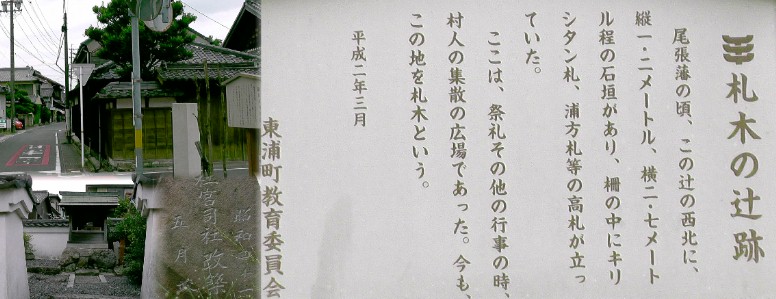 札木の辻跡
尾張藩の頃、この辻の西北に、
縦一・二メートル、横二・七メート
ル程の石垣があり、柵の中にキリ
シタン札、浦方札等の高札が立っ
ていた。
ここは、祭礼その他の行事の時、
村人の集散の広場であった。今も、
この地を札木という。
平成二年三月
東浦町教育委員会
昭和
営司社改築
五月